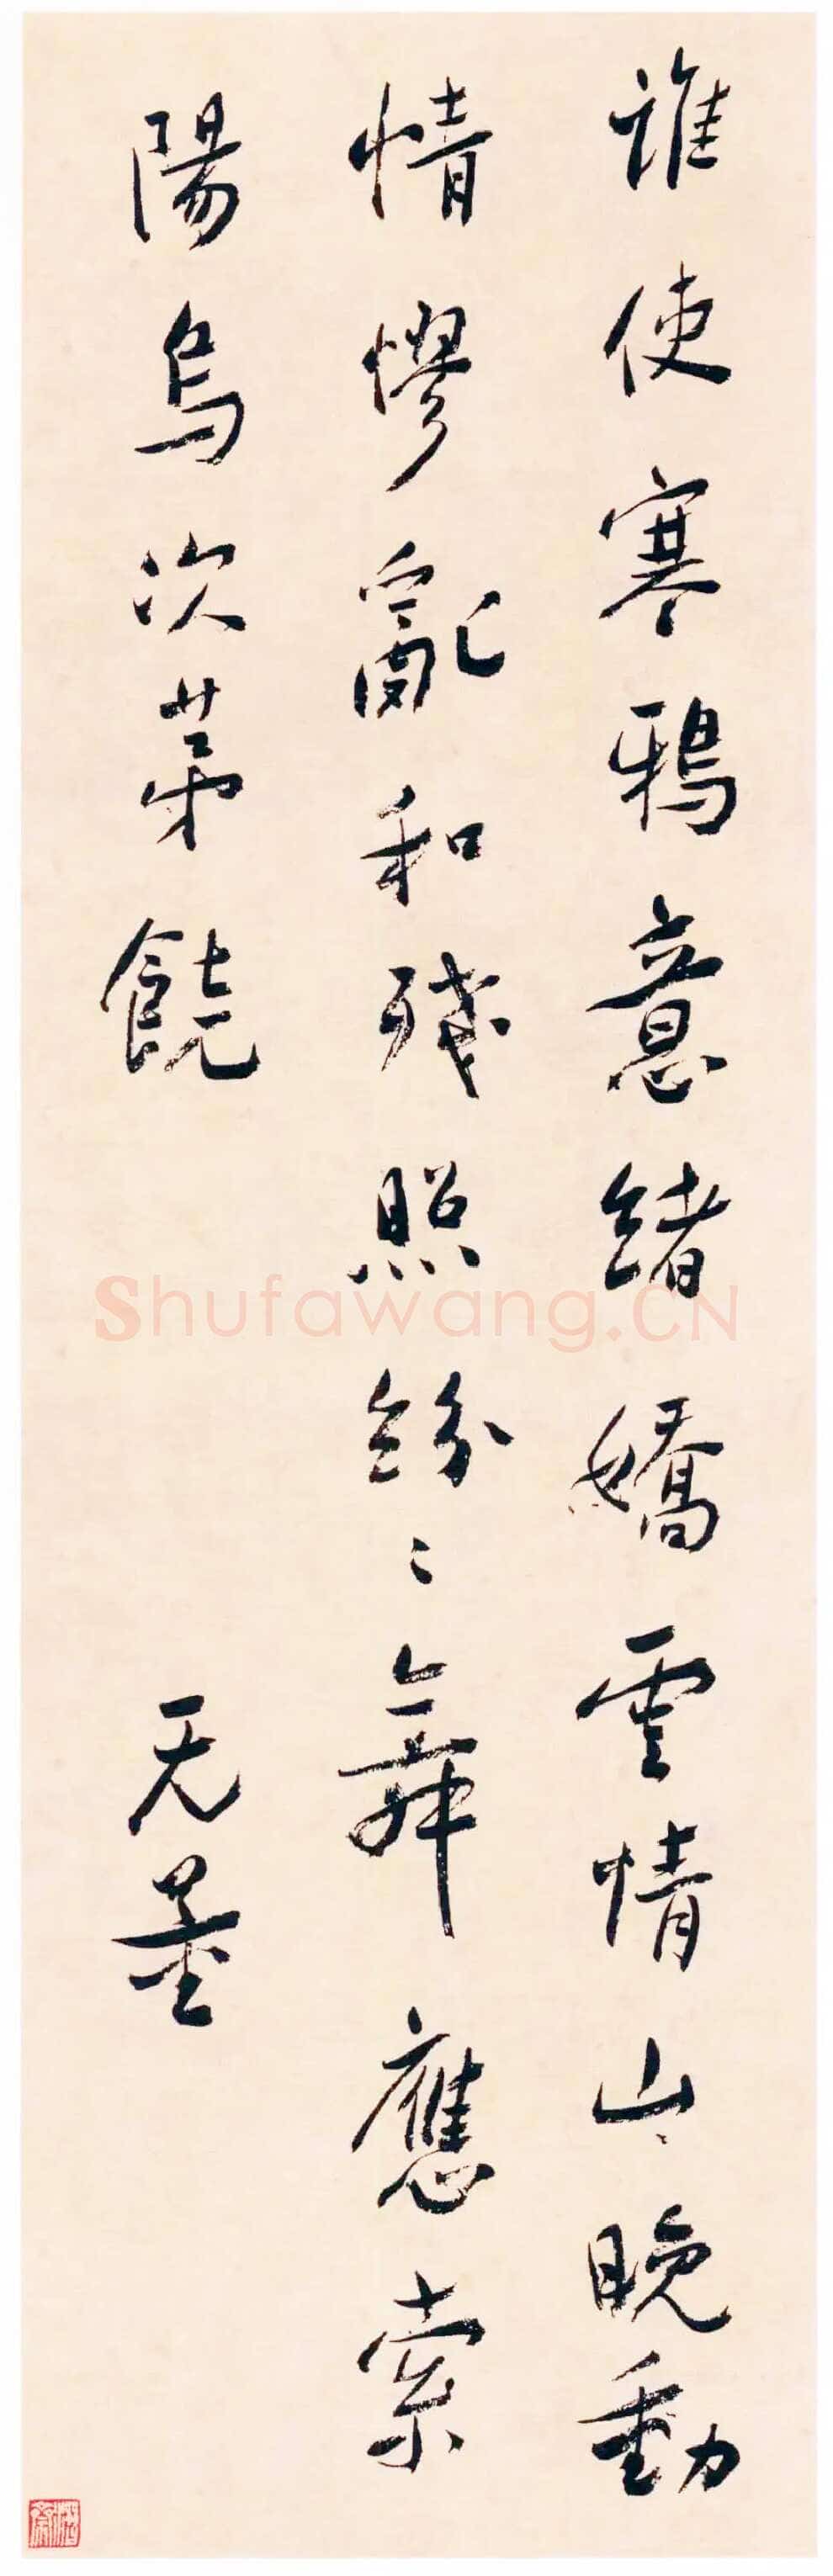 誰使寒鴉意緒嬌雲情山晚動
情憀亂和殘照紛〻舞應索
陽烏次苐饒
无量
Shufawang.CN